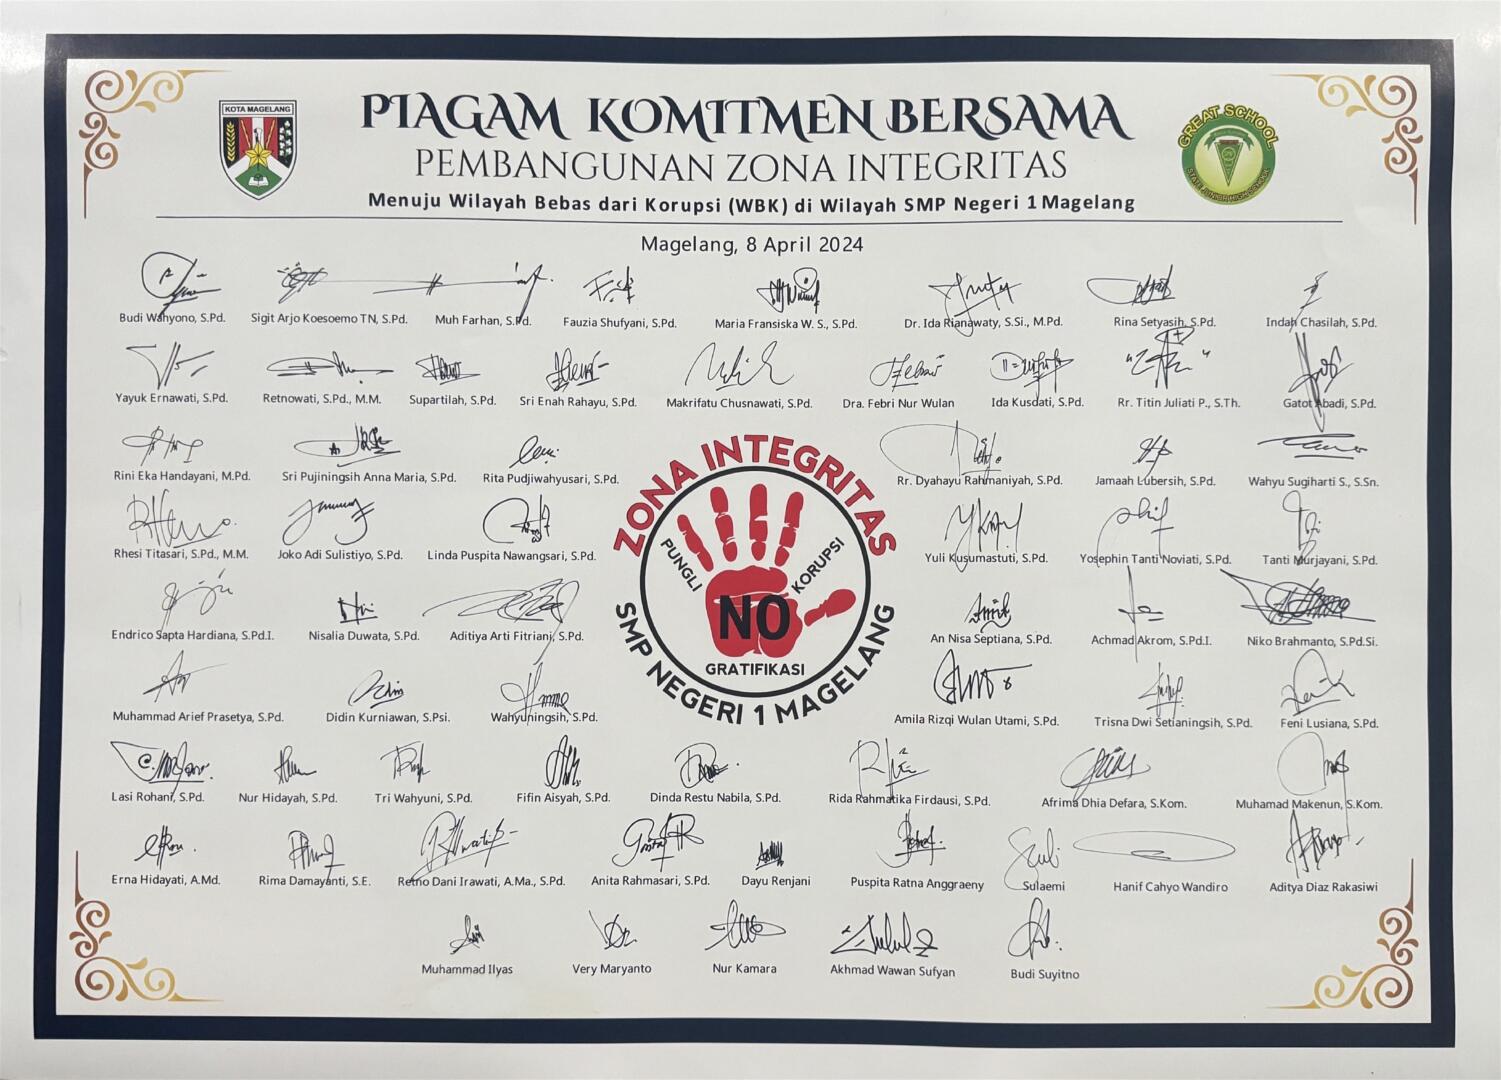 KOTA MAGELANG
PIAGAM KOMITMEN BERSAMA
GREAT SCHOOL
STATE JUNIOR HIGH SCHOOL
PEMBANGUNAN ZONA INTEGRITAS
Menuju Wilayah Bebas dari Korupsi (WBK) di Wilayah SMP Negeri 1 Magelang
Magelang, 8 April 2024
Budi Wahyono, S.Pd. Sigit Arjo Koesoemo TN, S.Pd. Muh Farhan, S.Pd. Fauzia Shufyani, S.Pd. Maria Fransiska W. S., S.Pd. Dr. Ida Rianawaty, S.Si., M.Pd. Rina Setyasih, S.Pd. Indah Chasilah, S.Pd.
Yayuk Ernawati, S.Pd. Retnowati, S.Pd., M.M. Supartilah, S.Pd. Sri Enah Rahayu, S.Pd. Makrifatu Chusnawati, S.Pd. Dra. Febri Nur Wulan Ida Kusdati, S.Pd. Rr. Titin Juliati P., S.Th. Gatot Abadi, S.Pd.
Rini Eka Handayani, M.Pd. Sri Pujiningsih Anna Maria, S.Pd. Rita Pudjiwahyusari, S.Pd. Rr. Dyahayu Rahmaniyah, S.Pd. Jamaah Lubersih, S.Pd. Wahyu Sugiharti S., S.Sn.
Rhesi Titasari, S.Pd., M.M. Joko Adi Sulistiyo, S.Pd. Linda Puspita Nawangsari, S.Pd. Yuli Kusumastuti, S.Pd. Yosephin Tanti Noviati, S.Pd. Tanti Murjayani, S.Pd.
Endrico Sapta Hardiana, S.Pd.I. Nisalia Duwata, S.Pd. Aditiya Arti Fitriani, S.Pd. An Nisa Septiana, S.Pd. Achmad Akrom, S.Pd.I. Niko Brahmanto, S.Pd.Si.
Muhammad Arief Prasetya, S.Pd. Didin Kurniawan, S.Psi. Wahyuningsih, S.Pd. Amila Rizqi Wulan Utami, S.Pd. Trisna Dwi Setianingsih, S.Pd. Feni Lusiana, S.Pd.
ZONA INTEGRITAS
PUNGLI
KORUPSI
NO
GRATIFIKASI
SMP NEGERI 1 MAGELANG
Lasi Rohani, S.Pd. Nur Hidayah, S.Pd. Tri Wahyuni, S.Pd. Fifin Aisyah, S.Pd. Dinda Restu Nabila, S.Pd. Rida Rahmatika Firdausi, S.Pd. Afrima Dhia Defara, S.Kom. Muhamad Makenun, S.Kom.
Erna Hidayati, A.Md. Rima Damayanti, S.E. Retno Dani Irawati, A.Ma., S.Pd. Anita Rahmasari, S.Pd. Dayu Renjani Puspita Ratna Anggraeny Sulaemi Hanif Cahyo Wandiro Aditya Diaz Rakasiwi
Muhammad Ilyas Very Maryanto Nur Kamara Akhmad Wawan Sufyan Budi Suyitno